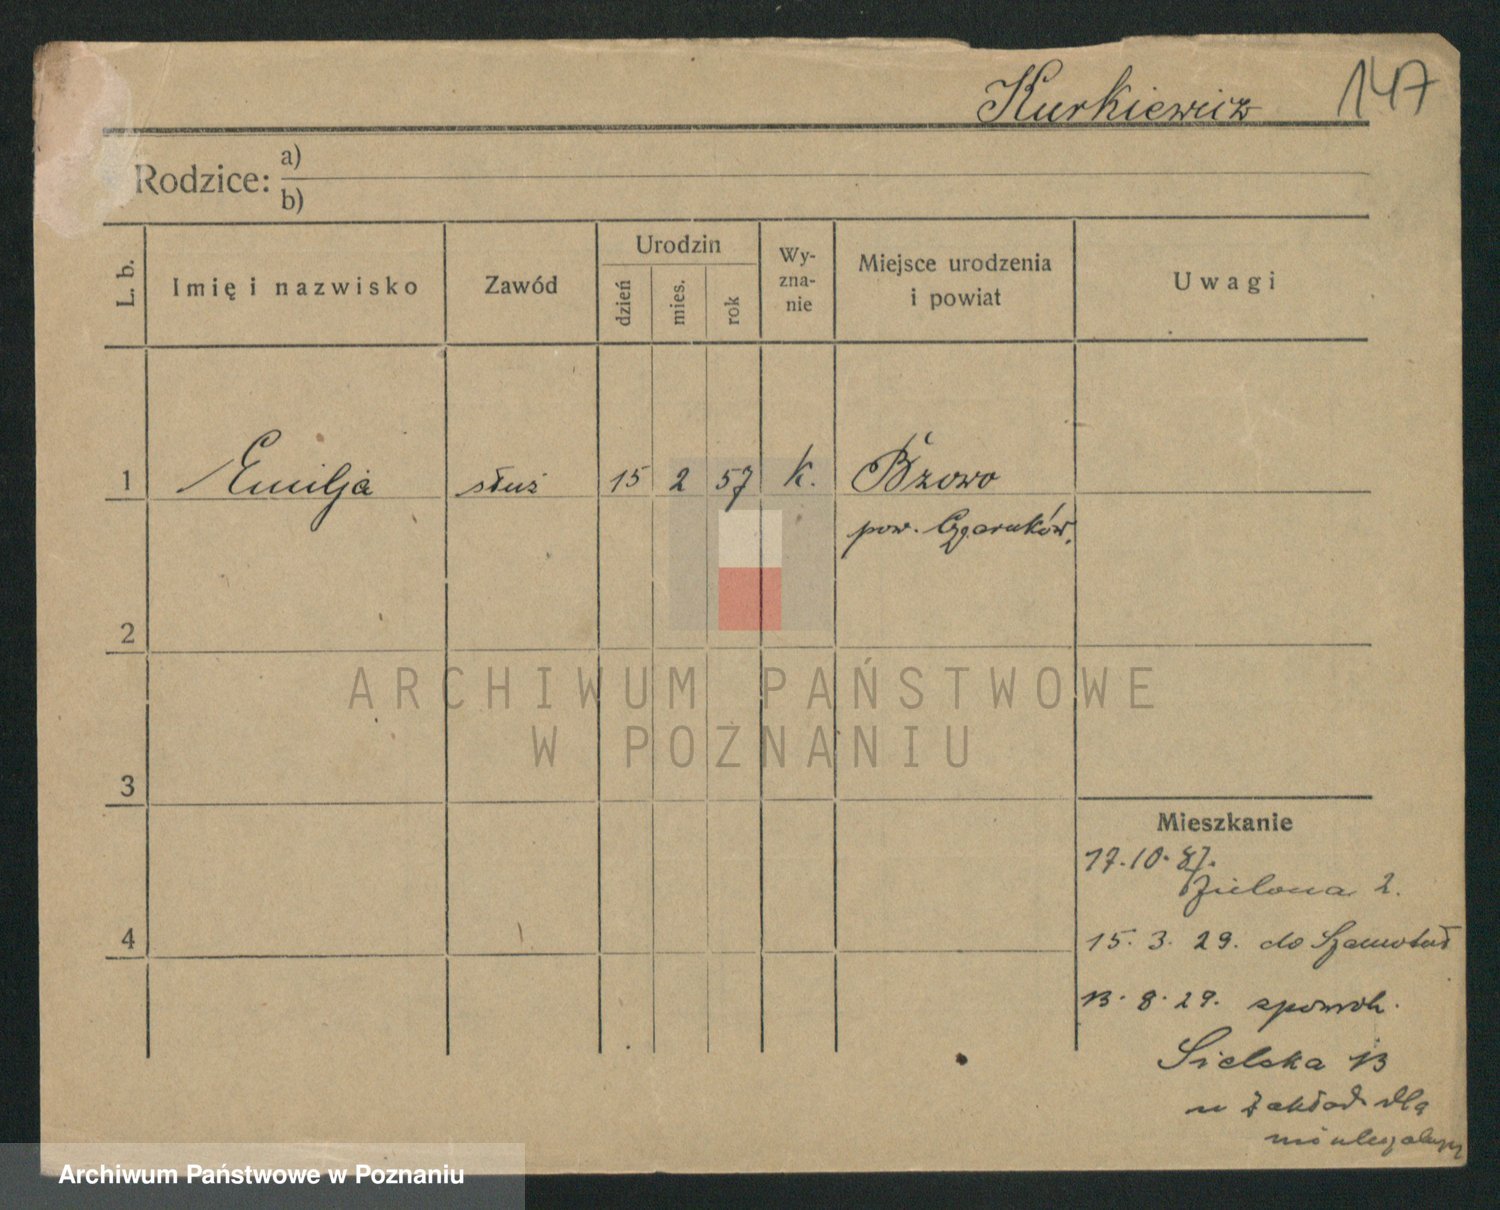 Kurkiewicz 147
Rodzice: a)
b)
L. b.
Imię i nazwisko
Zawód
Urodzin
dzień
mies.
rok
Wy-
zna-
nie
Miejsce urodzenia
i powiat
Uwagi
1 Emilja służ 15 2 57 K. Bzowo
pow. Czarnków.
2
3
4
Mieszkanie
17.10.
Zielona 2.
15. 3. 29. do Szamotuł
13. 8. 29. z powrok.
Sielska 13
w Zakład dla
ARCHIWUM PAŃSTWOWE
W POZNANIU
Archiwum Państwowe w Poznaniu